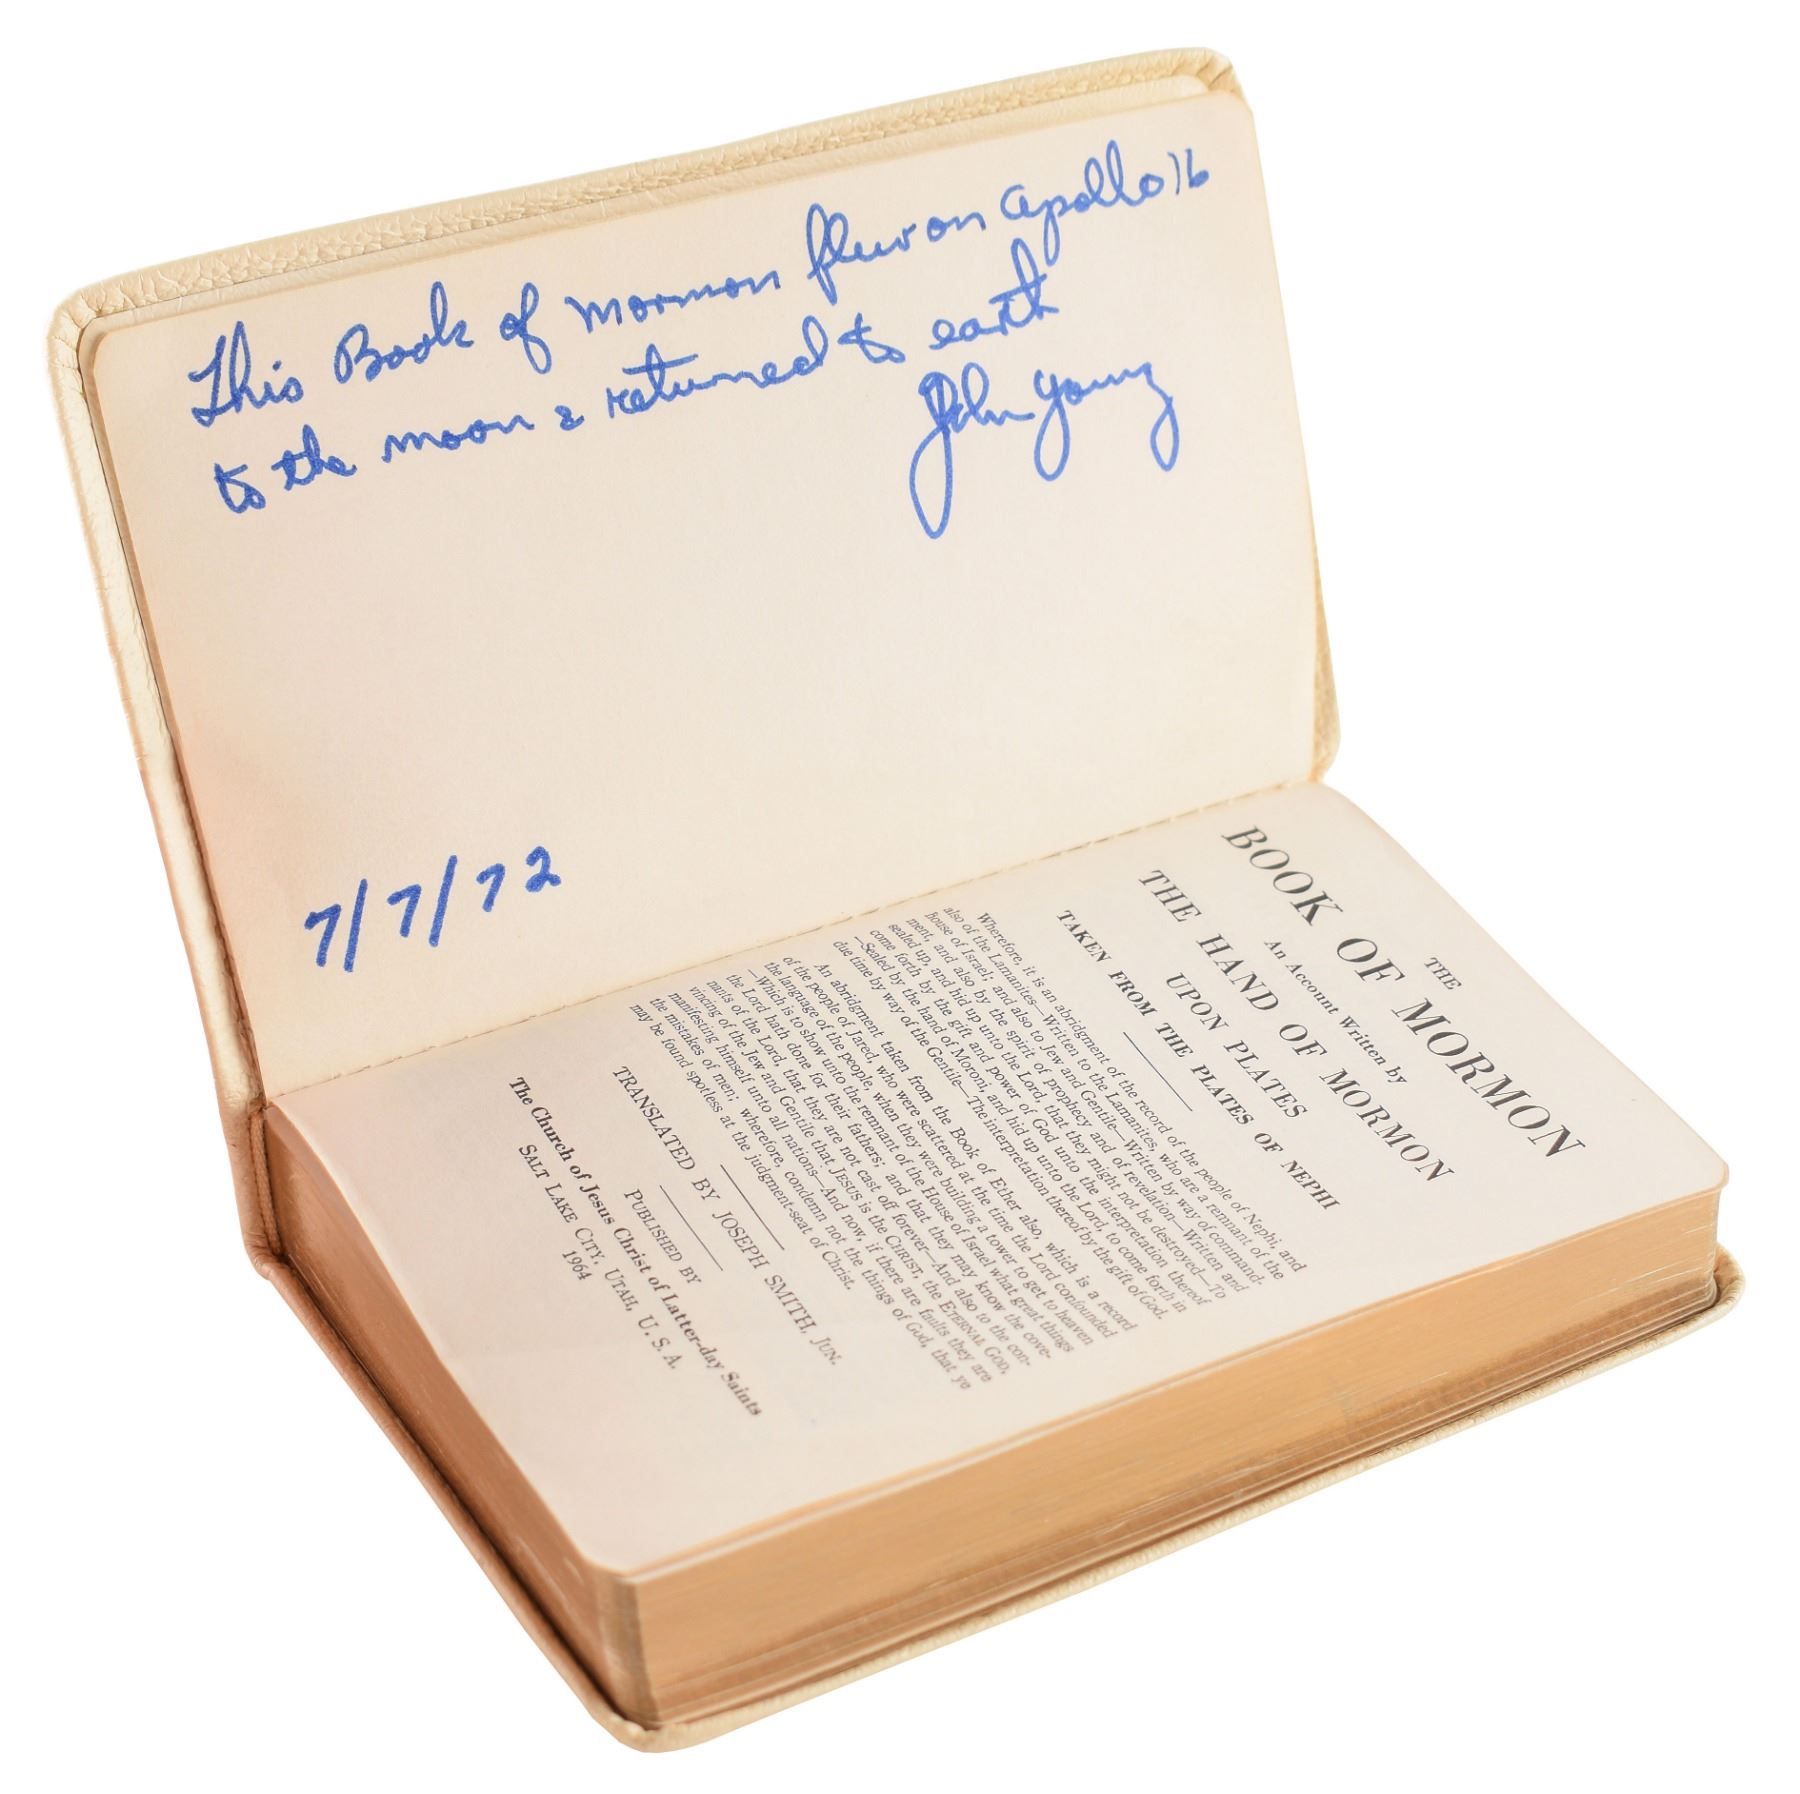 This Book of Mormon flew on Apollo 16
to the moon & returned to earth
John Young
7/7/72
THE
BOOK OF MORMON
An Account Written by
THE HAND OF MORMON
UPON PLATES
TAKEN FROM THE PLATES OF NEPHI
Wherefore, it is an abridgment of the record of the people of Nephi, and
also of the Lamanites—Written to the Lamanites, who are a remnant of the
house of Israel; and also to Jew and Gentile—Written by way of command-
ment, and also by the spirit of prophecy and of revelation—Written and
sealed up, and hid up unto the Lord, that they might not be destroyed—To
come forth by the gift and power of God unto the interpretation thereof
—Sealed by the hand of Moroni, and hid up unto the Lord, to come forth in
due time by way of the Gentile—The interpretation thereof by the gift of God.
An abridgment taken from the Book of Ether also, which is a record
of the people of Jared, who were scattered at the time the Lord confounded
the language of the people, when they were building a tower to get to heaven
—Which is to show unto the remnant of the House of Israel what great things
the Lord hath done for their fathers; and that they may know the cove-
nants of the Lord, that they are not cast off forever—And also to the con-
vincing of the Jew and Gentile that JESUS is the CHRIST, the ETERNAL GOD,
manifesting himself unto all nations—And now, if there are faults they are
the mistakes of men; wherefore, condemn not the things of God, that ye
may be found spotless at the judgment-seat of Christ.
TRANSLATED BY JOSEPH SMITH, JUN.
PUBLISHED BY
The Church of Jesus Christ of Latter-day Saints
SALT LAKE CITY, UTAH, U. S. A.
1964